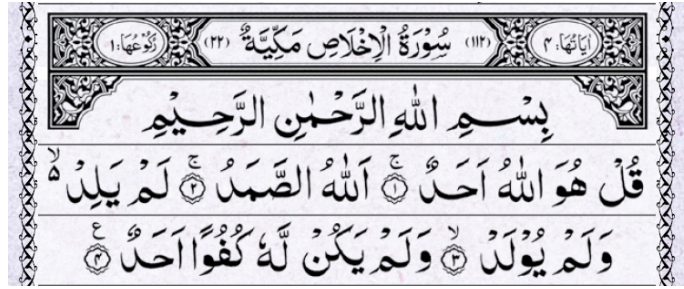 اٰيَاتُهَا: ۴ (۱۱۲) سُوْرَةُ الْاِخْلَاصِ مَكِّيَّةٌ (۲۲) رُكُوْعُهَا: ۱
بِسْمِ اللّٰهِ الرَّحْمٰنِ الرَّحِيْمِ
قُلْ هُوَ اللّٰهُ اَحَدٌ ۚ‏﴿۱﴾ اَللّٰهُ الصَّمَدُ ۚ‏﴿۲﴾ لَمْ يَلِدْ ۙ۬
وَلَمْ يُوْلَدْ ۙ‏﴿۳﴾ وَلَمْ يَكُنْ لَّهٗ كُفُوًا اَحَدٌ ﴿۴﴾ ع